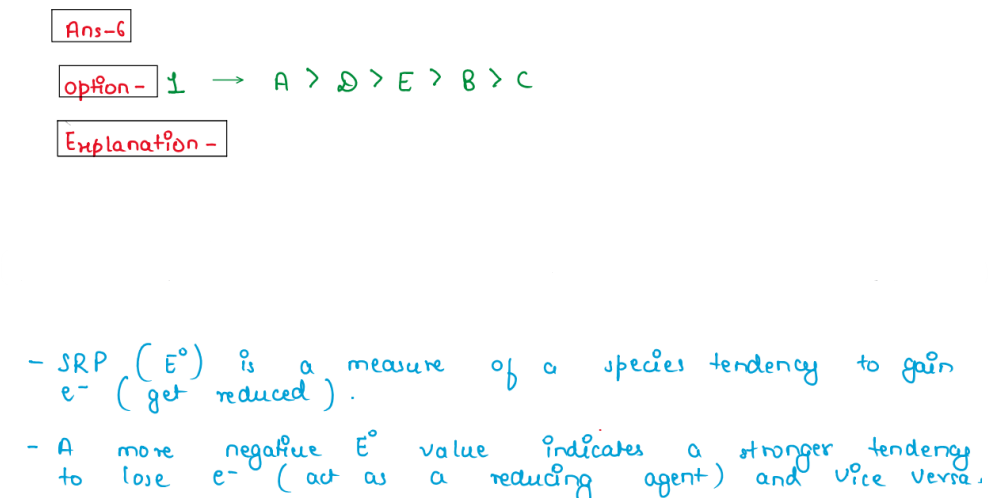 Ans-6
option- 1 → A > D > E > B > C
Explanation -
- SRP (E°) is a measure of a species tendency to gain
e⁻ ( get reduced ) .
- A more negative E° value indicates a stronger tendency
to lose e⁻ ( act as a reducing agent ) and vice versa.